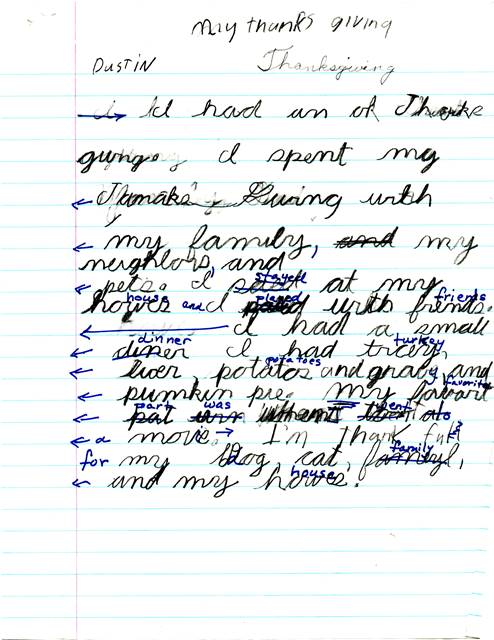 My thanks giving
DUSTIN Thanksgiving
I had an ok Thanks
giving. I spent my
Giving with
my family, and my
neighbors, and
stayed
pets. I at my
house and played friends
howes I with frends.
I had a small
dinner turkey
diner I had tircey,
potatoes
liver, potatos and gravy and
favorite
pumkin pie. My favorit
part was went
pat to
a movie. I'm thank full
for my dog cat, family,
house
and my howes.